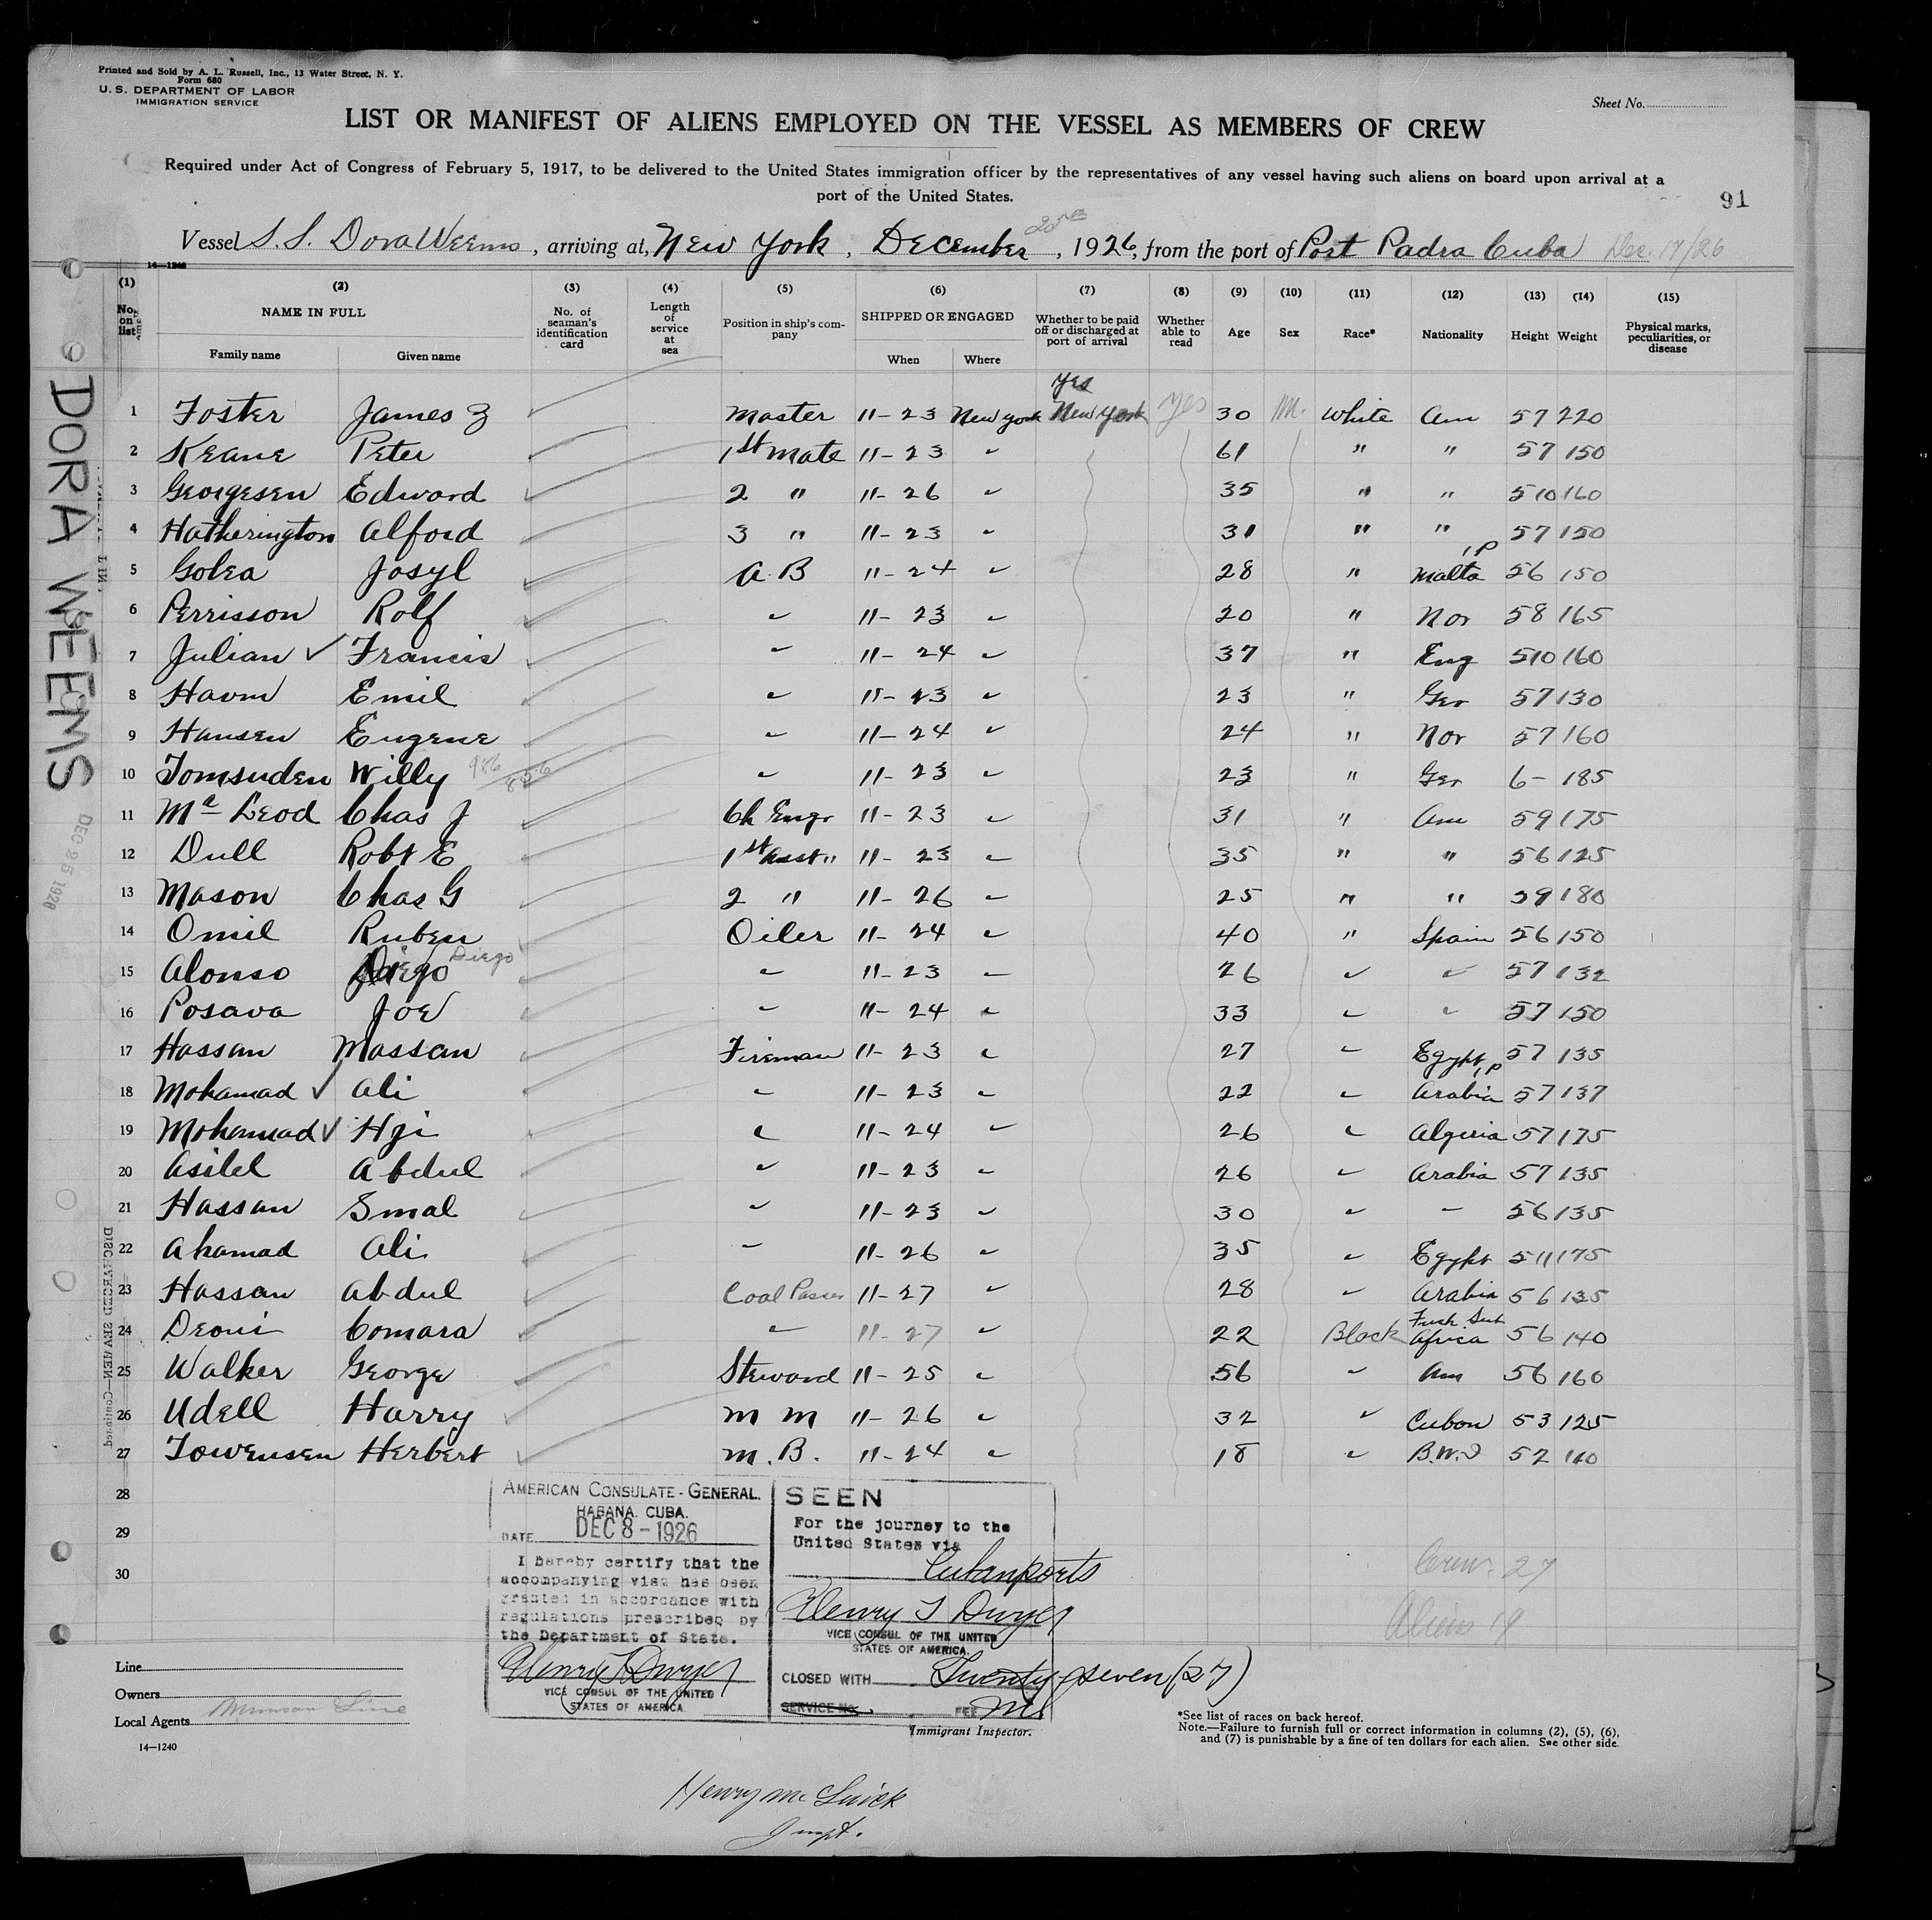 Printed and Sold by A. L. Russell, Inc., 13 Water Street, N. Y.
Form 680
U. S. DEPARTMENT OF LABOR
IMMIGRATION SERVICE
Sheet No.
LIST OR MANIFEST OF ALIENS EMPLOYED ON THE VESSEL AS MEMBERS OF CREW
Required under Act of Congress of February 5, 1917, to be delivered to the United States immigration officer by the representatives of any vessel having such aliens on board upon arrival at a
port of the United States.
91
Vessel S. S. Dora Weems, arriving at, New York, December 25th, 1926, from the port of Port Padra Cuba Dec. 17/26
14—1240
(1) (2) (3) (4) (5) (6) (7) (8) (9) (10) (11) (12) (13) (14) (15)
No. on list NAME IN FULL Family name Given name No. of seaman's identification card Length of service at sea Position in ship's company SHIPPED OR ENGAGED When Where Whether to be paid off or discharged at port of arrival Whether able to read Age Sex Race* Nationality Height Weight Physical marks, peculiarities, or disease
yes
1 Foster James Z Master 11-23 New York New York yes 30 M. White Am 57 220
2 Keane Peter 1st Mate 11-23 " 61 " " 57 150
3 Georgesen Edward 2 " 11-26 " 35 " " 510 160
4 Hatherington Alford 3 " 11-23 " 31 " " 57 150
5 Golea Josyl A.B 11-24 " 28 " Malta 56 150
6 Perrisson Rolf " 11-23 " 20 " Nor 58 165
7 Julian ✓ Francis " 11-24 " 37 " Eng 510 160
8 Havm Emil " 11-23 " 23 " Ger 57 130
9 Hansen Eugene " 11-24 " 24 " Nor 57 160
10 Tomsuden Willy " 11-23 " 23 " Ger 6- 185
11 Mc Leod Chas J Ch Engr 11-23 " 31 " Am 59 175
12 Dull Robt E 1st Asst " 11-23 " 35 " " 56 125
13 Mason Chas G 2 " 11-26 " 25 " " 59 180
14 Omil Ruben Oiler 11-24 " 40 " Spain 56 150
15 Alonso Diego Diego " 11-23 " 26 " " 57 132
16 Posava Joe " 11-24 " 33 " " 57 150
17 Hassan Massan Fireman 11-23 " 27 " Egypt 57 135
18 Mohamad ✓ Ali " 11-23 " 22 " Arabia 57 137
19 Mohamad ✓ Hgi " 11-24 " 26 " Algeria 57 175
20 Asilel Abdul " 11-23 " 26 " Arabia 57 135
21 Hassan Smal " 11-23 " 30 " " 56 135
22 Ahamad Ali " 11-26 " 35 " Egypt 511 175
23 Hassan Abdul Coal Passer 11-27 " 28 " Arabia 56 135
24 Deoni Comara " 11-27 " 22 Black Africa 56 140
25 Walker George Steward 11-25 " 56 " Am 56 160
26 Udell Harry M M 11-26 " 32 " Cuban 53 125
27 Towensen Herbert M.B. 11-24 " 18 " B.W.I 52 110
28
29
30
Crew. 27
Aliens 19
DORA WEEMS
DEC 25 1926
AMERICAN CONSULATE-GENERAL.
HABANA. CUBA.
DATE DEC 8-1926
I hereby certify that the
accompanying visa has been
granted in accordance with
regulations prescribed by
the Department of State.
Henry T Dwyer
VICE CONSUL OF THE UNITED
STATES OF AMERICA.
SEEN
For the journey to the
United States via
Cuban ports
Henry T Dwyer
VICE CONSUL OF THE UNITED
STATES OF AMERICA.
CLOSED WITH Twenty-seven (27)
SERVICE No. FEE
Immigrant Inspector.
Line
Owners
Local Agents Munson Line
14—1240
*See list of races on back hereof.
Note.—Failure to furnish full or correct information in columns (2), (5), (6),
and (7) is punishable by a fine of ten dollars for each alien. See other side.